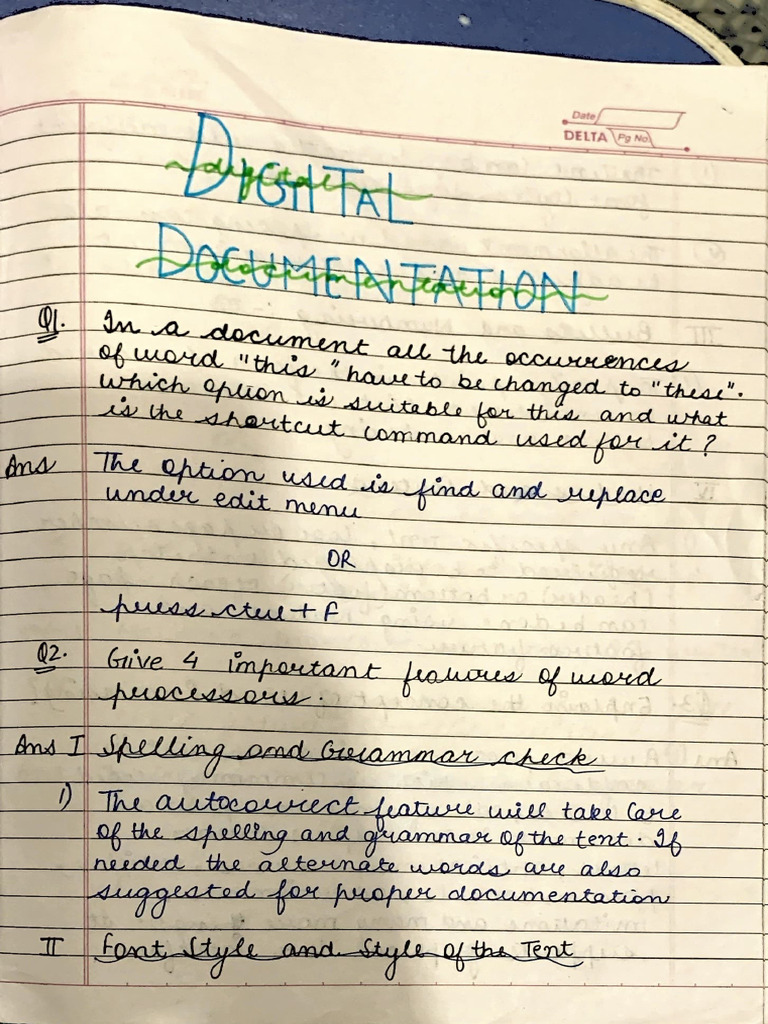 Date
DELTA Pg No.
DIGITAL
digital
DOCUMENTATION
documentation
Q1. In a document all the occurrences
of word "this" have to be changed to "these".
which option is suitable for this and what
is the shortcut command used for it?
Ans The option used is find and replace
under edit menu
OR
press ctrl + F
Q2. Give 4 important features of word
processors.
Ans I Spelling and Grammar check
i) The autocorrect feature will take care
of the spelling and grammar of the tent. If
needed the alternate words are also
suggested for proper documentation
II Font Style and Style of the Tent